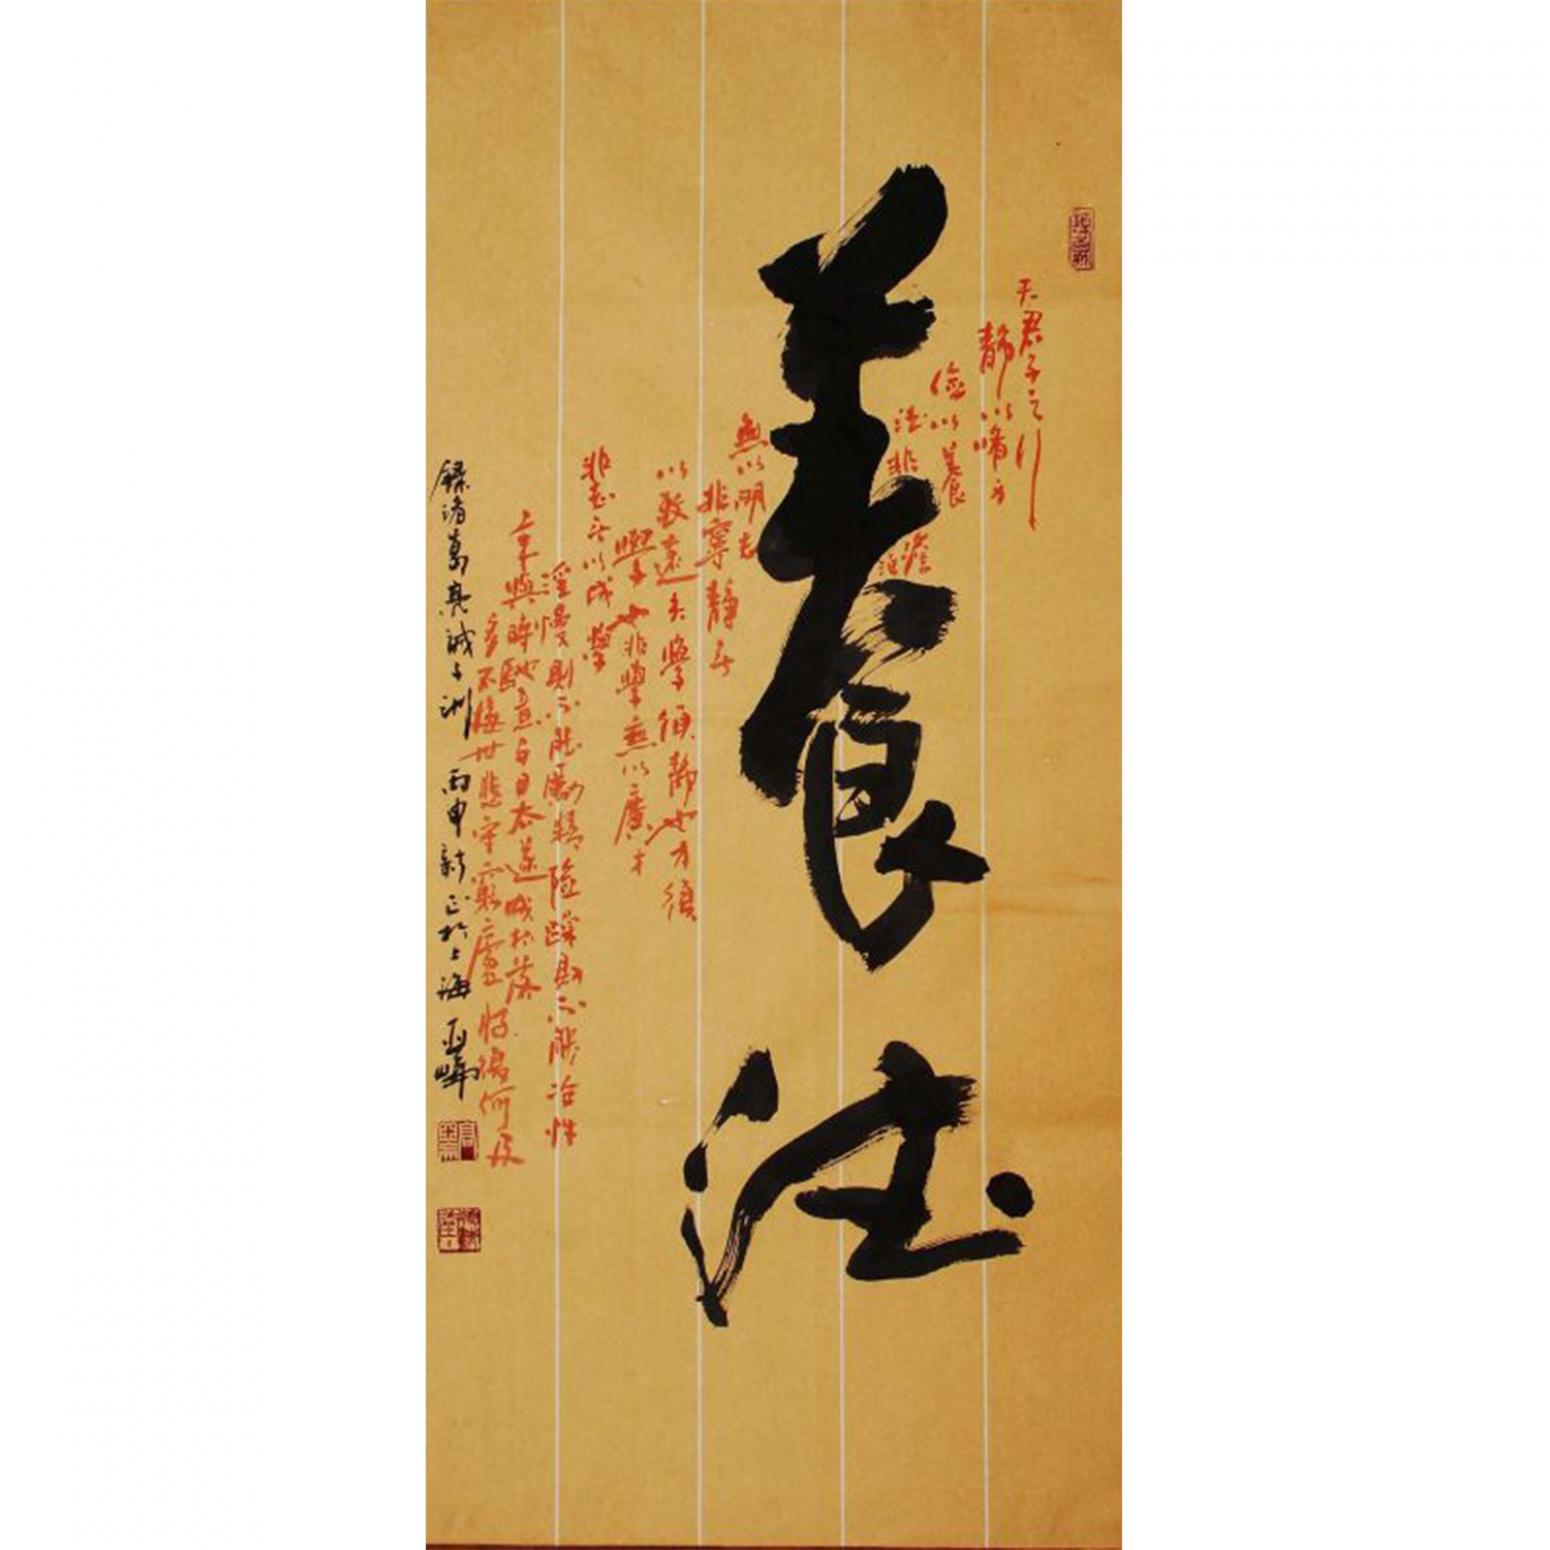 養德
夫君子之行
静以脩身
儉以養
德非澹泊
無以明志
非寧静無
以致遠夫學須静也才須
學也非學無以廣才
非志無以成學
淫慢則不能勵精險躁則不能冶性
年與時馳意與日去遂成枯落
多不接世悲守窮廬將復何及
錄諸葛亮誡子訓 丙申新正於上海